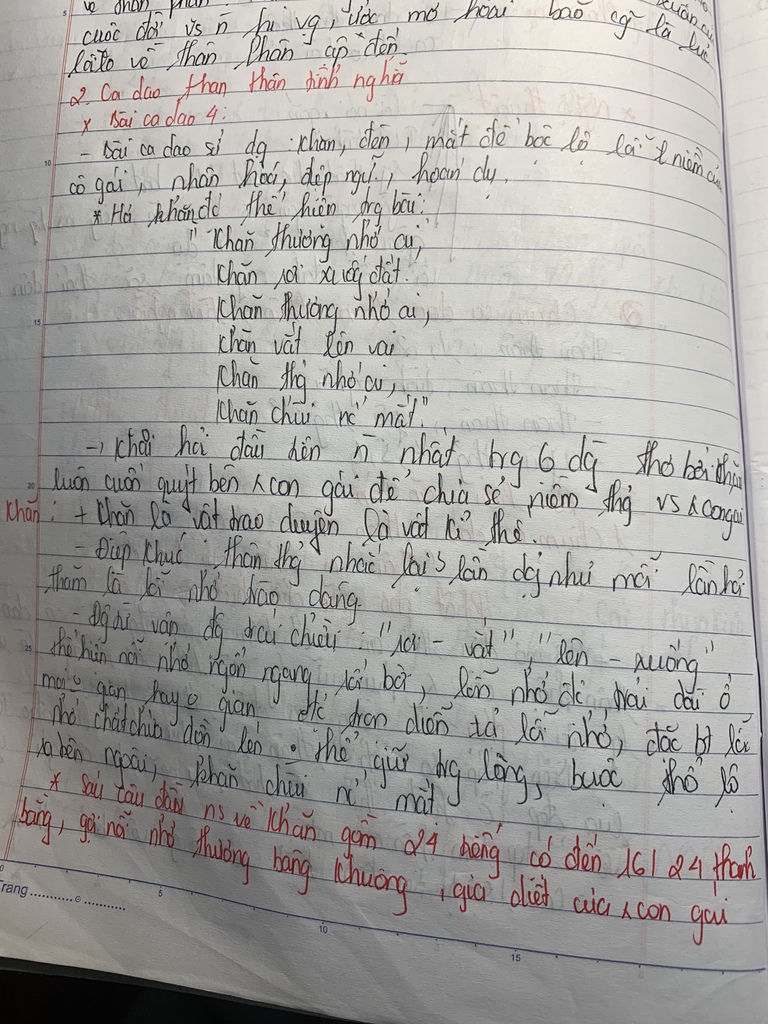 về thân phận
cuộc đời vs n hi vg, ước mơ hoài bão cg là lúc
lo về thân phận ập đến
2. Ca dao than thân tình nghĩa
* Bài ca dao 4:
- Bài ca dao sử dg: khăn, đèn, mắt để bộc lộ niềm của
cô gái, nhân hoá, điệp ngữ, hoán dụ.
* H/a khăn đc thể hiện trg bài:
" Khăn thương nhớ ai,
Khăn rơi xuống đất.
Khăn thương nhớ ai,
Khăn vắt lên vai
Khăn thg nhớ ai,
Khăn chùi nc mắt".
-> Khăn hỏi đầu tiên n nhất trg 6 dg thơ bởi khăn
luôn cuốn quýt bên con gái để chia sẻ niềm thg vs con gái
Khăn: + Khăn là vật trao duyên là vật kỉ
- Điệp khúc thăn thg nhắc lại 3 lần như mỗi lần hỏi
thăm là nhớ
- Động từ vận đg trái chiều "rơi - vắt", "lên - xuống"
thể hiện nỗi nhớ ngổn ngang bời, nhớ trải dài ở
gian hay gian diễn tả nhớ, bt
nhớ thể giữ trg lòng, buộc thổ lộ
ra bên ngoài, khăn chùi nc mắt
* Sáu câu đầu ns về khăn gồm 24 tiếng có đến 16/24 thanh
bằng, gợi nỗi nhớ thương bâng khuâng, da diết của con gái
Trang
5
10
15